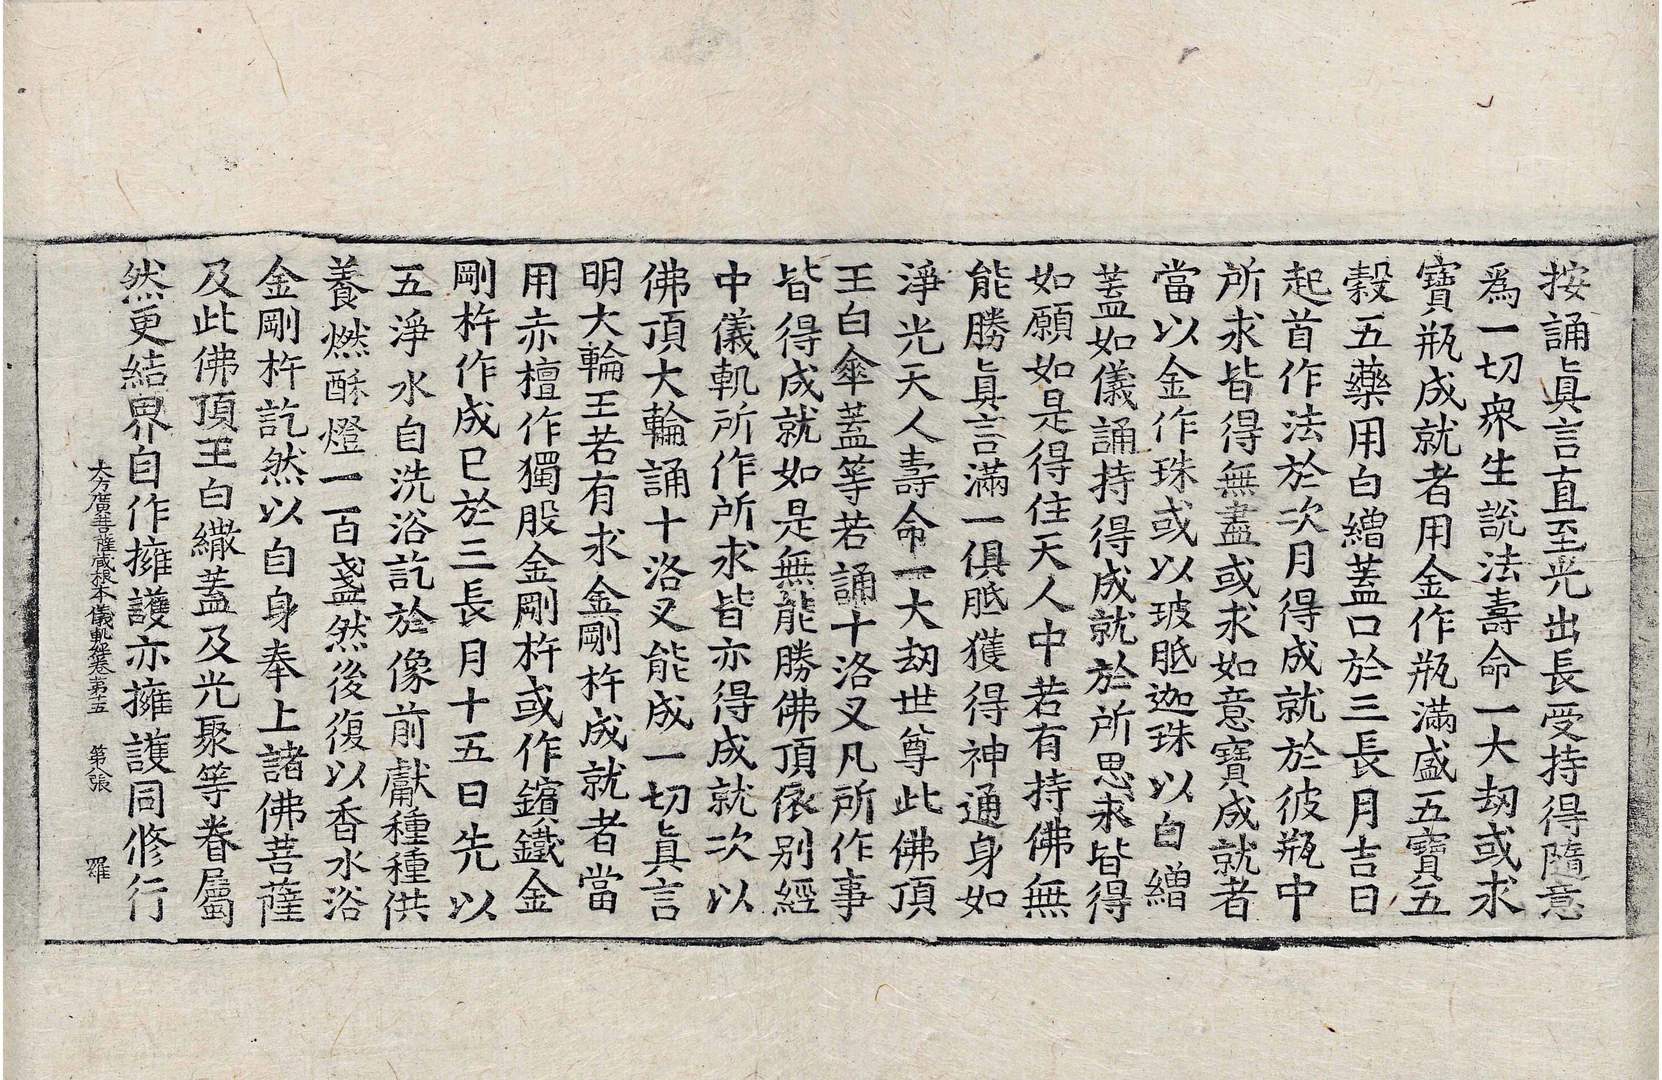 按誦眞言直至光出長受持得隨意
爲一切衆生說法壽命一大劫或求
寶瓶成就者用金作瓶滿盛五寶五
穀五藥用白繒蓋口於三長月吉日
起首作法於次月得成就於彼瓶中
所求皆得無盡或求如意寶成就者
當以金作珠或以玻胝迦珠以白繒
蓋如儀誦持得成就於所思求皆得
如願如是得住天人中若有持佛無
能勝眞言滿一俱胝獲得神通身如
淨光天人壽命一大劫世尊此佛頂
王白傘蓋等若誦十洛叉凡所作事
皆得成就如是無能勝佛頂依别經
中儀軌所作所求皆亦得成就次以
佛頂大輪誦十洛叉能成一切眞言
明大輪王若有求金剛杵成就者當
用赤檀作獨股金剛杵或作鑌鐵金
剛杵作成已於三長月十五日先以
五淨水自洗浴訖於像前獻種種供
養燃酥燈一百盞然後復以香水浴
金剛杵訖然以自身奉上諸佛菩薩
及此佛頂王白繖蓋及光聚等眷屬
然更結界自作擁護亦擁護同修行
大方廣菩薩藏根本儀軌經卷第五 第八張 羅